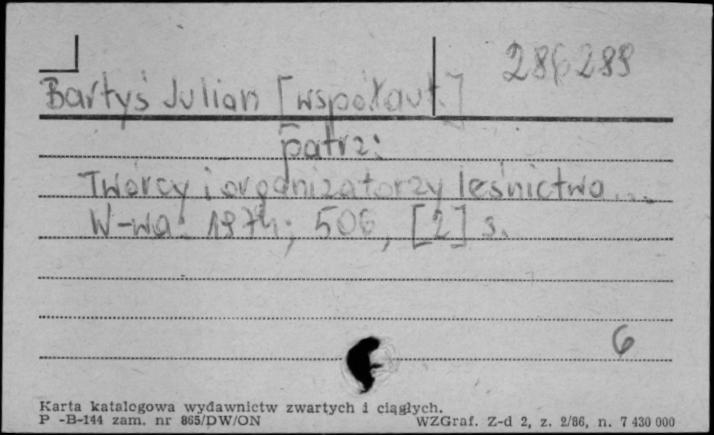 286289
Bartyś Julian [współaut.]
patrz:
Twórcy i organizatorzy leśnictwa...
W-wa: 1974; 506, [2] s.
6
Karta katalogowa wydawnictw zwartych i ciągłych.
P -B-144 zam. nr 865/DW/ON WZGraf. Z-d 2, z. 2/86, n. 7 430 000